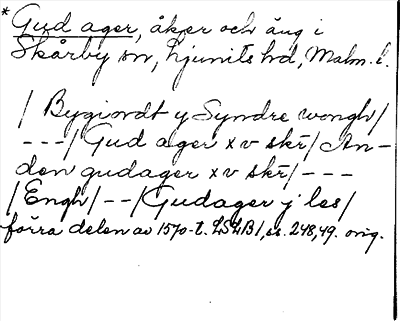 * Gud ager, åker och äng i
Skårby sn, Ljunits hd, Malm. l.
/ Bygiordt y Syndre wongh /
---/ Gud ager xv skr̄ / An-
den gudager xv skr̄ / ---
/ Engh / -- / Gudager j les /
förra delen av 1570-t. LSLB 1, ss. 248, 49. orig.